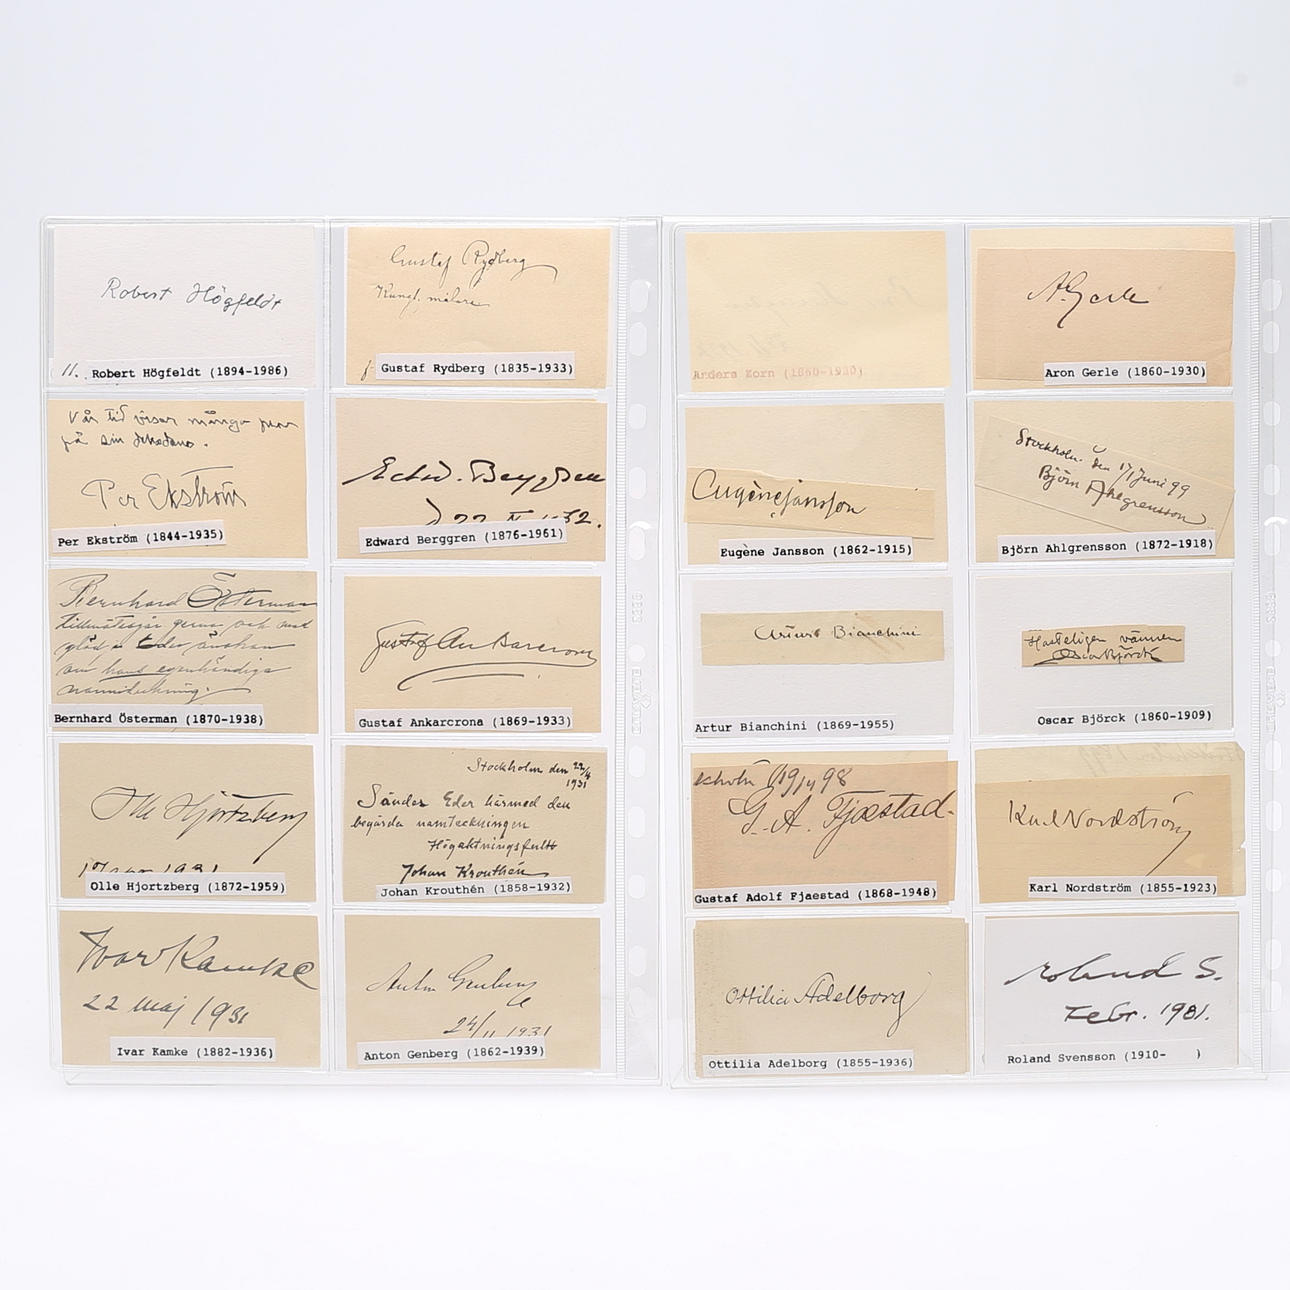 Robert Högfeldt
11. Robert Högfeldt (1894-1986)
Gustaf Rydberg
Kungl. målare
Gustaf Rydberg (1835-1933)
Anders Zorn (1860-1920)
A. Gerle
Aron Gerle (1860-1930)
Vår tid visar många
på sin
Per Ekström
Per Ekström (1844-1935)
Edw. Berggren
Edward Berggren (1876-1961)
Eugène Jansson
Eugène Jansson (1862-1915)
Stockholm den 17/1 Juni 99
Björn Ahlgrensson
Björn Ahlgrensson (1872-1918)
Bernhard Österman
tillmötesgår gerna och med
glädje Eder önskan
om hans egenhändiga
namnteckning.
Bernhard Österman (1870-1938)
Gustaf Ankarcrona
Gustaf Ankarcrona (1869-1933)
Arturo Bianchini
Artur Bianchini (1869-1955)
Hasteligen vännen
Oscar Björck
Oscar Björck (1860-1909)
Olle Hjortzberg
1931
Olle Hjortzberg (1872-1959)
Stockholm den 22/4
1931
Sänder Eder härmed den
begärda namnteckningen
Högaktningsfullt
Johan Krouthén
Johan Krouthén (1858-1932)
19/4 98
G. A. Fjæstad-
Gustaf Adolf Fjaestad (1868-1948)
Karl Nordström
Karl Nordström (1855-1923)
Ivar Kamke
22 maj 1931
Ivar Kamke (1882-1936)
Anton Genberg
24/11 1931
Anton Genberg (1862-1939)
Ottilia Adelborg
Ottilia Adelborg (1855-1936)
Roland S.
Febr. 1981.
Roland Svensson (1910- )